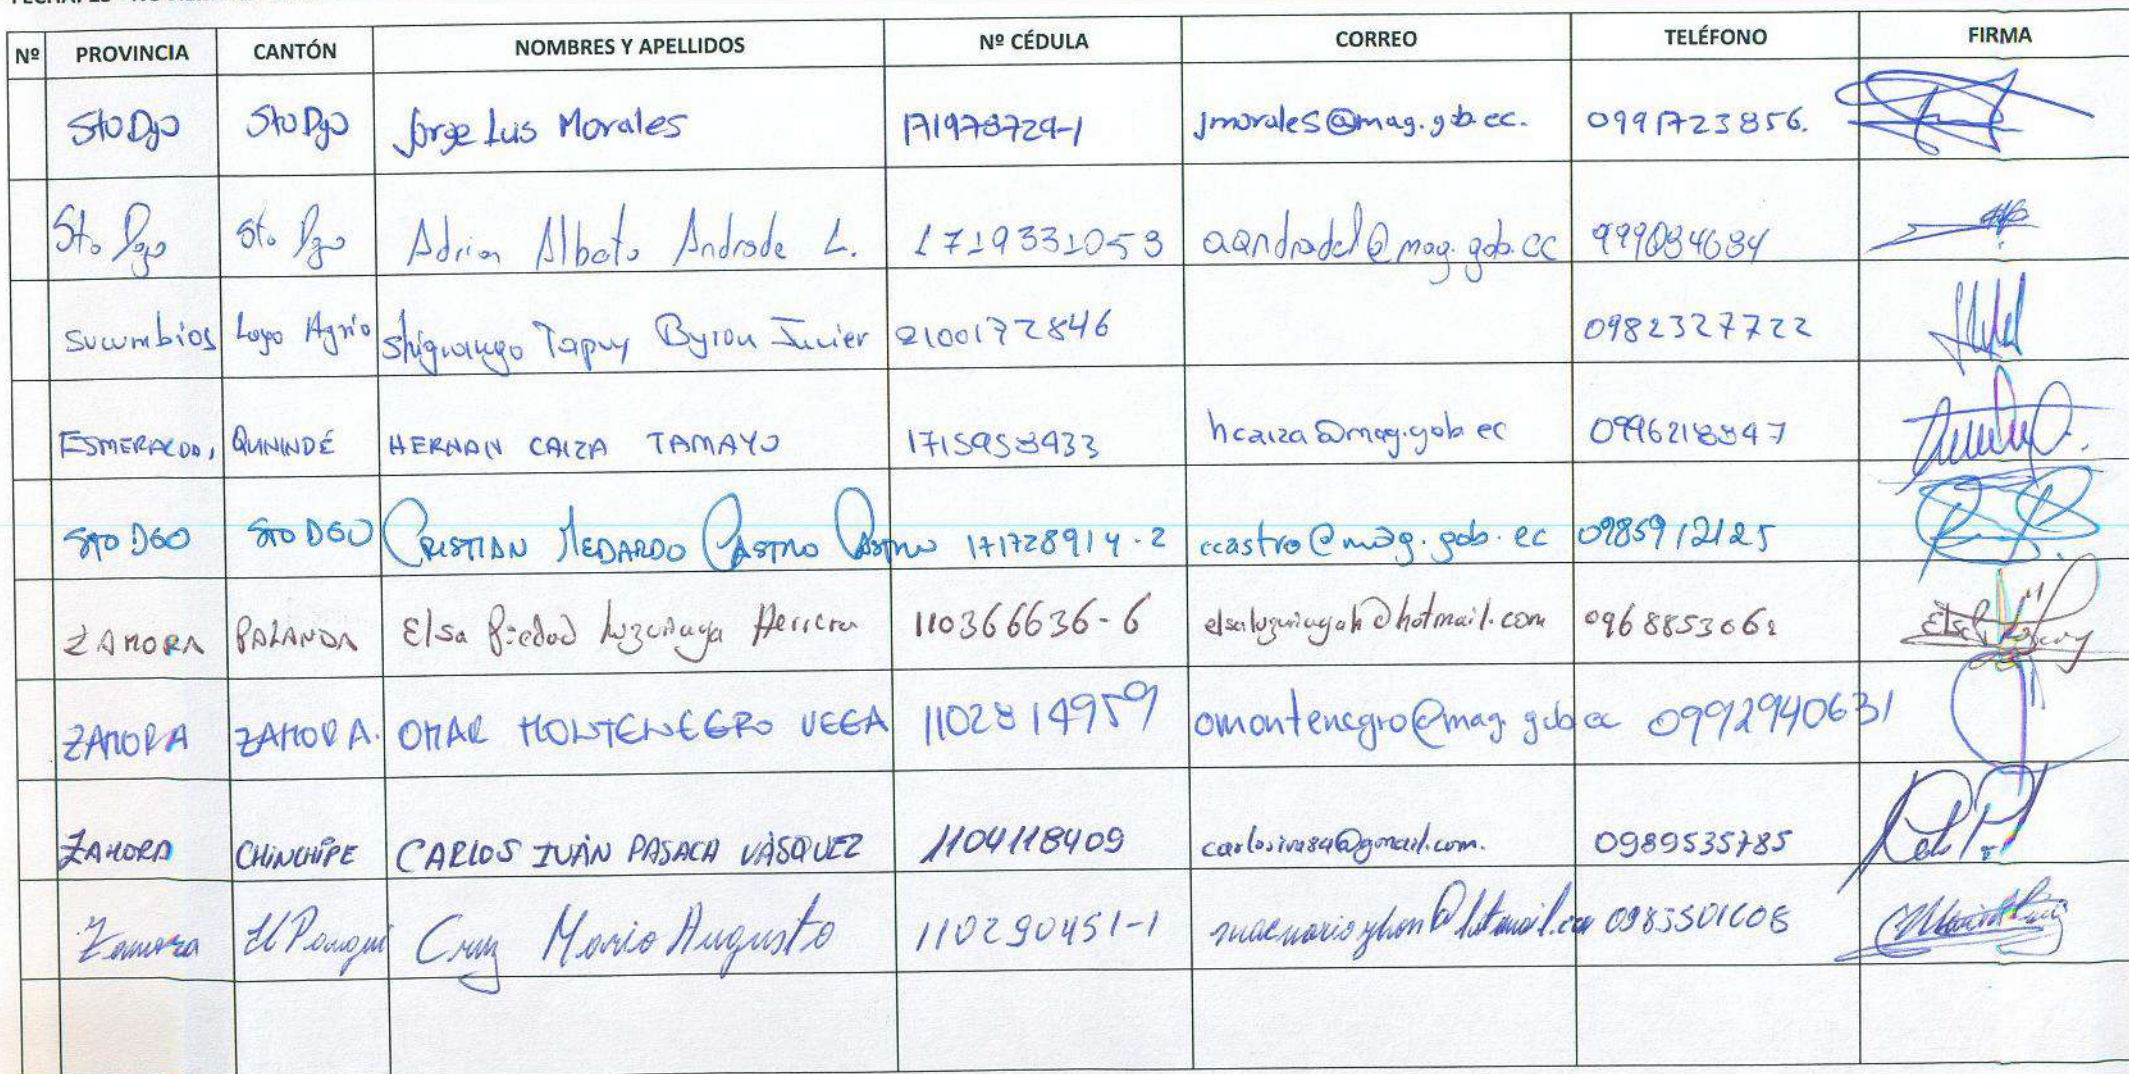 Nº PROVINCIA CANTÓN NOMBRES Y APELLIDOS Nº CÉDULA CORREO TELÉFONO FIRMA
Sto Dgo Sto Dgo Jorge Luis Morales 171978729-1 jmorales@mag.gob.ec. 0991723856.
Sto Dgo Sto Dgo Adrian Alberto Andrade L. 1719331053 aandradel@mag.gob.ec 999084684
Sucumbios Lago Agrio Shiguango Tapuy Byron Javier 2100172846 0982327722
ESMERALDAS QUININDÉ HERNAN CAIZA TAMAYO 1715958933 hcaiza@mag.gob.ec 0996218847
STO DGO STO DGO CRISTIAN MEDARDO CASTRO CASTRO 171728914-2 ccastro@mag.gob.ec 0985912125
ZAMORA PALANDA Elsa Piedad Luzuriaga Herrera 110366636-6 elsaluzuriagah@hotmail.com 0968853062
ZAMORA ZAMORA. OMAR MONTENEGRO VEGA 1102814959 omontenegro@mag.gob.ec 0992940631
ZAMORA CHINCHIPE CARLOS IVÁN PASACA VÁSQUEZ 1104118409 carlosivas84@gmail.com. 0989535785
Zamora El Pangui Cruz Mario Augusto 110290451-1 0983501608